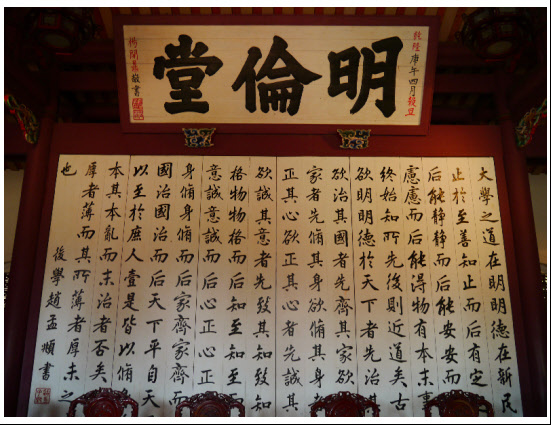 明倫堂
乾隆庚午四月穀旦
楊開鼎敬書
大學之道在明明德在新民
止於至善知止而后有定
后能靜靜而后能安安而
慮慮而后能得物有本末事
終始知所先後則近道矣古
欲明明德於天下者先治其
欲治其國者先齊其家欲
家者先脩其身欲脩其身者
正其心欲正其心者先誠其
欲誠其意者先致其知致知
格物物格而后知至知至
意誠意誠而后心正心正
身脩身脩而后家齊家齊而
國治國治而后天下平自天
以至於庶人壹是皆以脩
本其本亂而末治者否矣
厚者薄而其所薄者厚未之
也
後學趙孟頫書